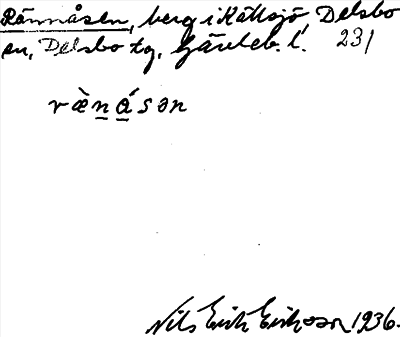 Rännåsen, berg i Kättsjö, Delsbo
sn, Delsbo tg, Gävleb. l. 231
ræ̀nåsən
Nils Erik Eriksson 1936.